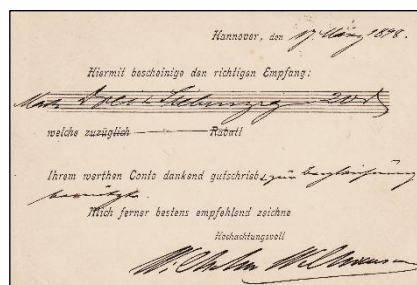 Hannover, den 17. März 1898.
Hiermit bescheinige den richtigen Empfang:
Mark Drei & Siebenzig 20
welche zuzüglich Rabatt
Ihrem werthen Conto dankend gutschrieb, zur
Mich ferner bestens empfehlend zeichne
Hochachtungsvoll
Wilhelm